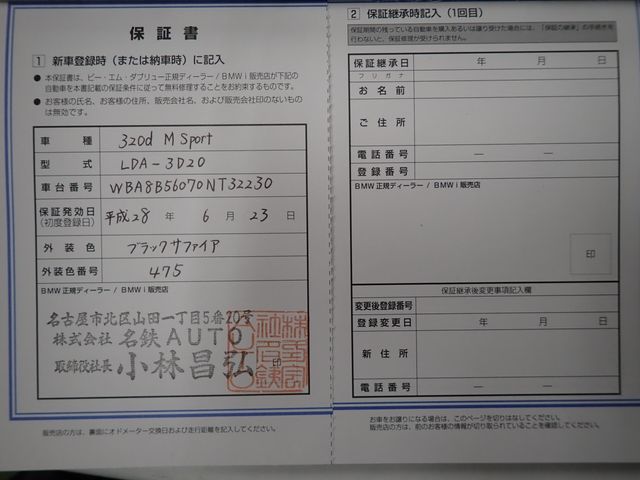 保証書
1 新車登録時（または納車時）に記入
● 本保証書は、ビー・エム・ダブリュー正規ディーラー / BMW i 販売店が下記の
自動車を本書記載の保証条件に従って無料修理することをお約束するものです。
● お客様の氏名、お客様の住所、販売会社名、および販売会社印のないもの
は無効です。
車種 320d M Sport
型式 LDA-3D20
車台番号 WBA8B56070NT32230
保証発効日
(初度登録日) 平成28 年 6 月 23 日
外装色 ブラックサファイア
外装色番号 475
BMW 正規ディーラー / BMW i 販売店
名古屋市北区山田一丁目5番20号
株式会社 名鉄AUTO
取締役社長 小林昌弘 印
販売店の方は、裏面にオドメーター交換日および走行距離を記入してください。
2 保証継承時記入（1回目）
保証期間の残っている自動車を購入あるいは譲り受けた場合には、「保証の継承」の手続きを
行わないと、保証修理が受けられません。
保証継承日 年 月 日
フリガナ
お名前
ご住所
電話番号 ー ー
登録番号
BMW 正規ディーラー / BMW i 販売店
印
保証継承後変更事項記入欄
変更後登録番号
登録変更日 年 月 日
新住所
電話番号 ー ー
お車をお譲りになる場合は、このページを切りはなしてください。
販売店の方は、前のお客様の情報が切り取られていることを確認してください。